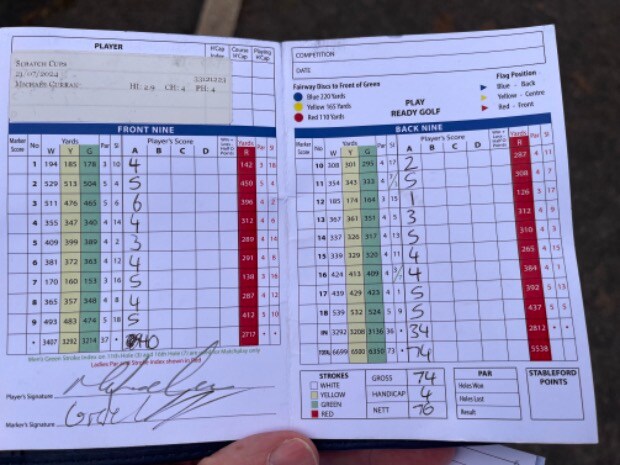 PLAYER
H'Cap Index Course H'Cap Playing H'Cap
SCRATCH CUPS
21/07/2024 23121223
MICHAEL CURRAN HI: 2.9 CH: 4 PH: 4
FRONT NINE
Marker Score No Yards Par SI Player's Score Yards Par SI
W Y G A B C D R
1 194 185 178 3 10 4 142 3 18
2 529 513 504 5 4 5 450 5 4
3 511 476 465 5 6 6 396 4 2
4 355 347 340 4 14 4 312 4 6
5 409 399 389 4 2 3 289 4 14
6 381 372 363 4 12 4 291 4 8
7 170 160 153 3 16 5 138 3 16
8 365 357 348 4 8 4 287 4 12
9 493 483 474 5 18 5 412 5 10
• 3407 3292 3214 37 • 40 2717 • •
Ladies Par and Stroke Index shown in Red
Player's Signature
Marker's Signature
COMPETITION
DATE
Fairway Discs to Front of Green
Blue 220 Yards
Yellow 165 Yards
Red 110 Yards
PLAY
READY GOLF
Flag Position
Blue - Back
Yellow - Centre
Red - Front
BACK NINE
Marker Score No Yards Par SI Player's Score Yards Par SI
W Y G A B C D R
10 308 301 295 4 17 2 287 4 11
11 354 343 333 4 5 308 4 7
12 185 174 164 3 15 1 126 3 17
13 367 361 351 4 5 3 312 4 9
14 337 326 317 4 13 5 310 4 3
15 339 329 320 4 11 4 265 4 15
16 424 413 409 4 4 384 4 1
17 439 429 423 4 1 5 392 5 13
18 539 532 524 5 9 5 437 5 5
IN 3292 3208 3136 36 • 34 2812 • •
TOTAL 6699 6500 6350 73 • 74 5538
STROKES
WHITE
YELLOW
GREEN
RED
GROSS 74
HANDICAP 4
NETT 70
PAR
Holes Won
Holes Lost
Result
STABLEFORD
POINTS